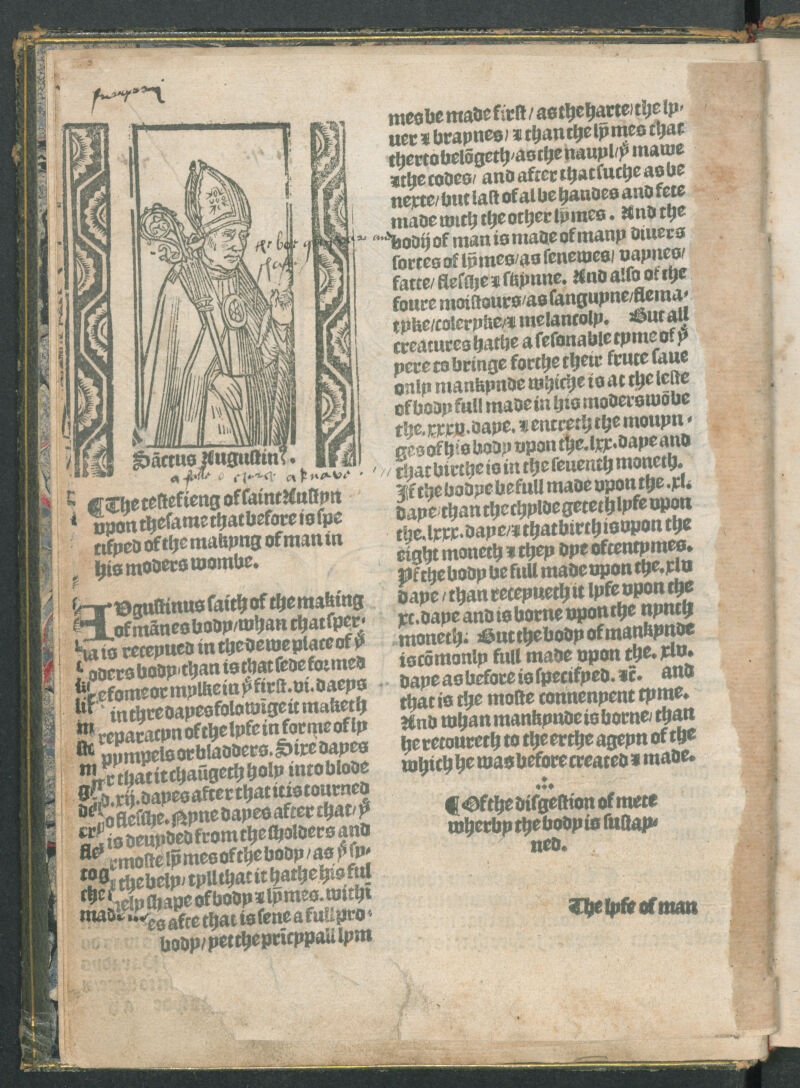 Sāctus Augustin⁹.
¶ The testefieng of saint Austyn
vpon the same that before is spe
tifyed of the makyng of man in
his moders wombe.
AVgustinus saith of the making
of mānes body/whan that sper-
is receyued in the dewe place of yͤ
oders body/than is that sede formed
efome or mylke in yͤ first .vi. daeys
in thre dayes folowīge it maketh
reparacyn of the lyfe in forme of ly
pympels or bladders. Sixe dayes
r that it chaūgeth holy into blode
d.xij. dayes after that it is tourned
o flesshe. Nyne dayes after that/yͤ
is deuyded from the sholders and
rmoste lȳmes of the body/as yͤ sy-
the bely/tyll that it hathe his ful
ely shape of body ⁊ lȳmes. withī
es afte that is sene a full pro-
body/yet the prīcyppall lym
mes be made first/as the harte/the ly-
uer ⁊ braynes/⁊ than the lȳmes that
therto belōgeth/as the nauyl/yͤ mawe
⁊ the codes/ and after that suche as be
nexte/but last of al be handes and fete
made with the other lȳmes. And the
bodij of man is made of many diuers
sortes of lȳmes/as senewes/ vaynes/
fatte/flesshe ⁊ skynne. And also of the
foure moistours/as sanguyne/flema-
tyke/coleryke/⁊ melancoly. But all
creatures hathe a sesonable tyme of yͤ
yere to bringe forthe their frute saue
only mankynde whiche is at the leste
of body full made in his moders wōbe
the.xxxv.daye. ⁊ entreth the mouyn-
ges of his body vpon the.lxx.daye and
that birthe is in the seuenth moneth.
If the bodye be full made vpon the .xl.
daye/than the chylde geteth lyfe vpon
the.lxxx.daye/⁊ that birth is vpon the
eight moneth ⁊ they dye oftentymes.
Yf the body be full made vpon the.xlv
daye/than receyueth it lyfe vpon the
xc.daye and is borne vpon the nynth
moneth. But the body of mankynde
is cōmonly full made vpon the. xlv.
daye as before is specifyed. ⁊c̄. and
that is the moste connenyent tyme.
And whan mankynde is borne/than
he retoureth to the erthe ageyn of the
which he was before created ⁊ made.
¶ Of the disgestion of mete
wherby the body is sustay-
ned.
The lyfe of man